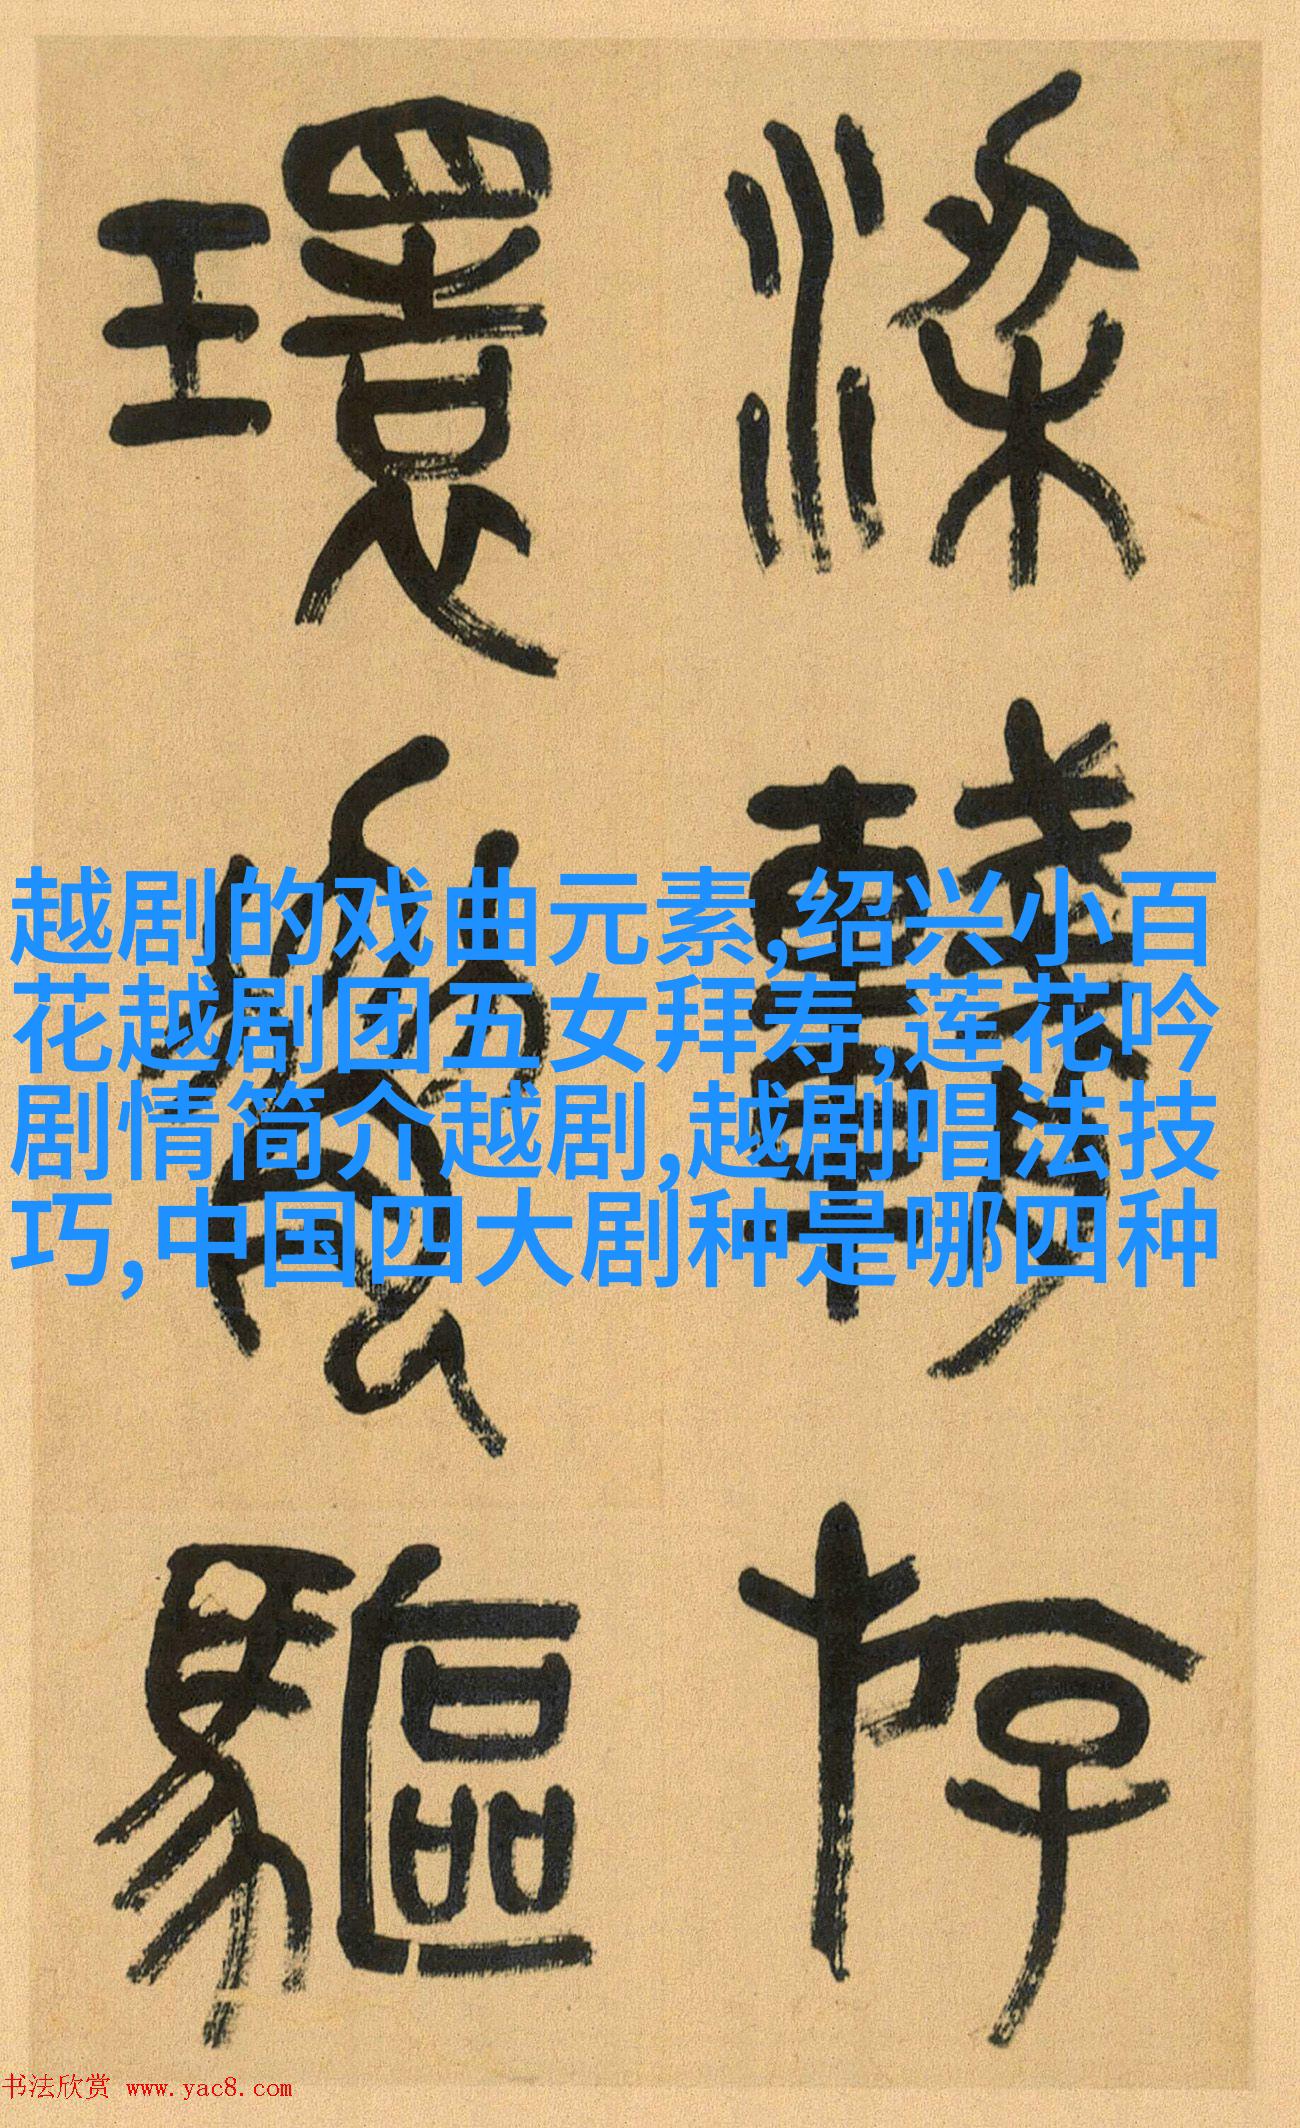 越剧的戏曲元素,绍兴小百
花越剧团五女拜寿,莲花吟
剧情简介越剧,越剧唱法技
巧,中国四大剧种是哪四种
存
環
驅
书法欣赏 www.yac8.com